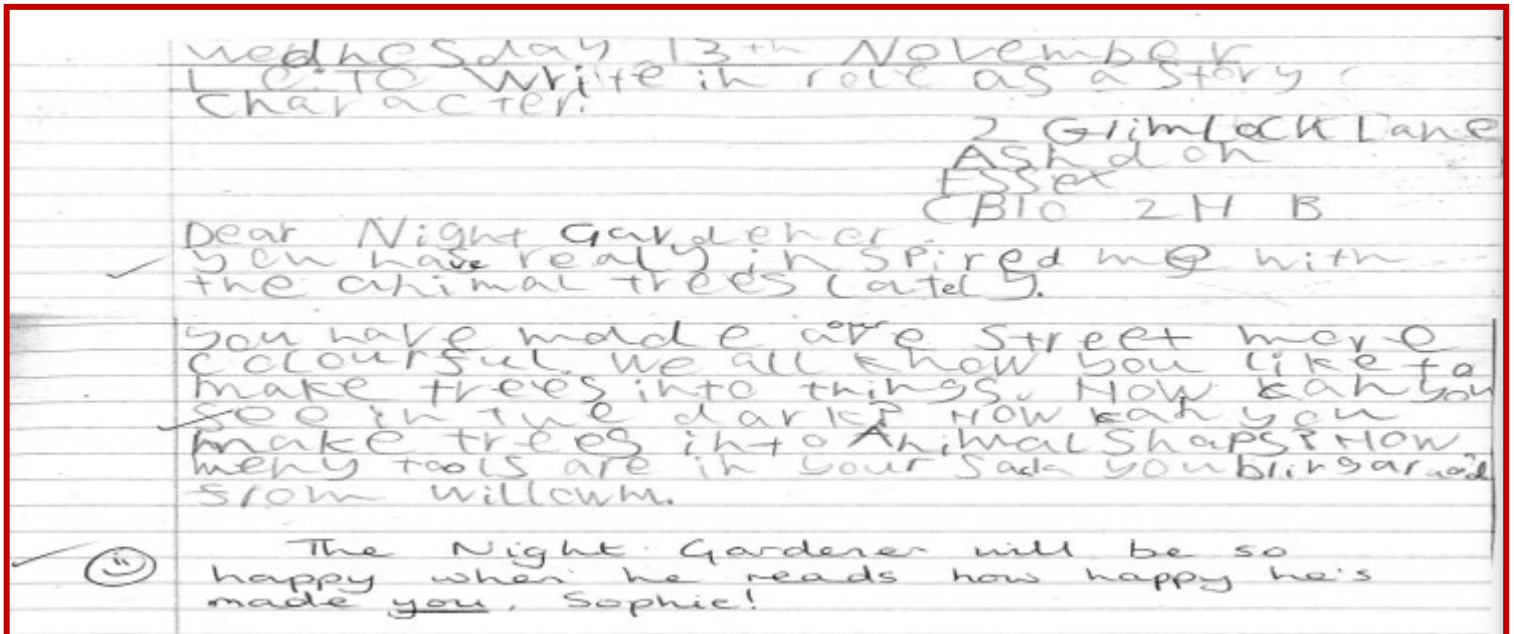 Wednesday 13th November
L.C. To Write in role as a story
character.
2 Grimlock Lane
Ashdon
Essex
CB10 2HB
Dear Night Gardener
you have realy inspired me with
the animal trees lately.
you have made our Street more
colourful. We all know you like to
make trees into things. How kan you
see in the dark? How kan you
make trees into Animal Shaps? How
meny tools are in your Sack you bring around
from william.
The Night Gardener will be so
happy when he reads how happy he's
made you, Sophie!